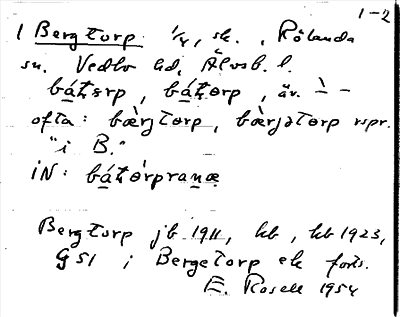 1-2
1 Bergtorp 1/4, sk., Rölanda
sn. Vedbo hd, Älvsb. l.
bát̠ərp, bát̠orp, äv. ̀ -
ofta: bærjtorp, bærjətorp rspr.
"i B."
iN: bát̠orpranæ
Bergtorp jb 1911, kb, kb 1923,
GSI i Bergetorp ek forts.
E. Rosell 1954